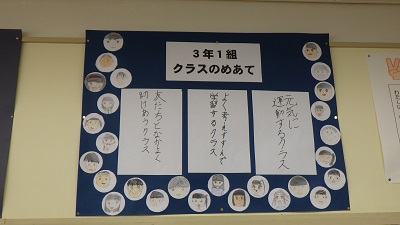 3年1組
クラスのめあて
元気に
運動するクラス
よく考えすすんで
学習するクラス
友だちとなかよく
助け合うクラス